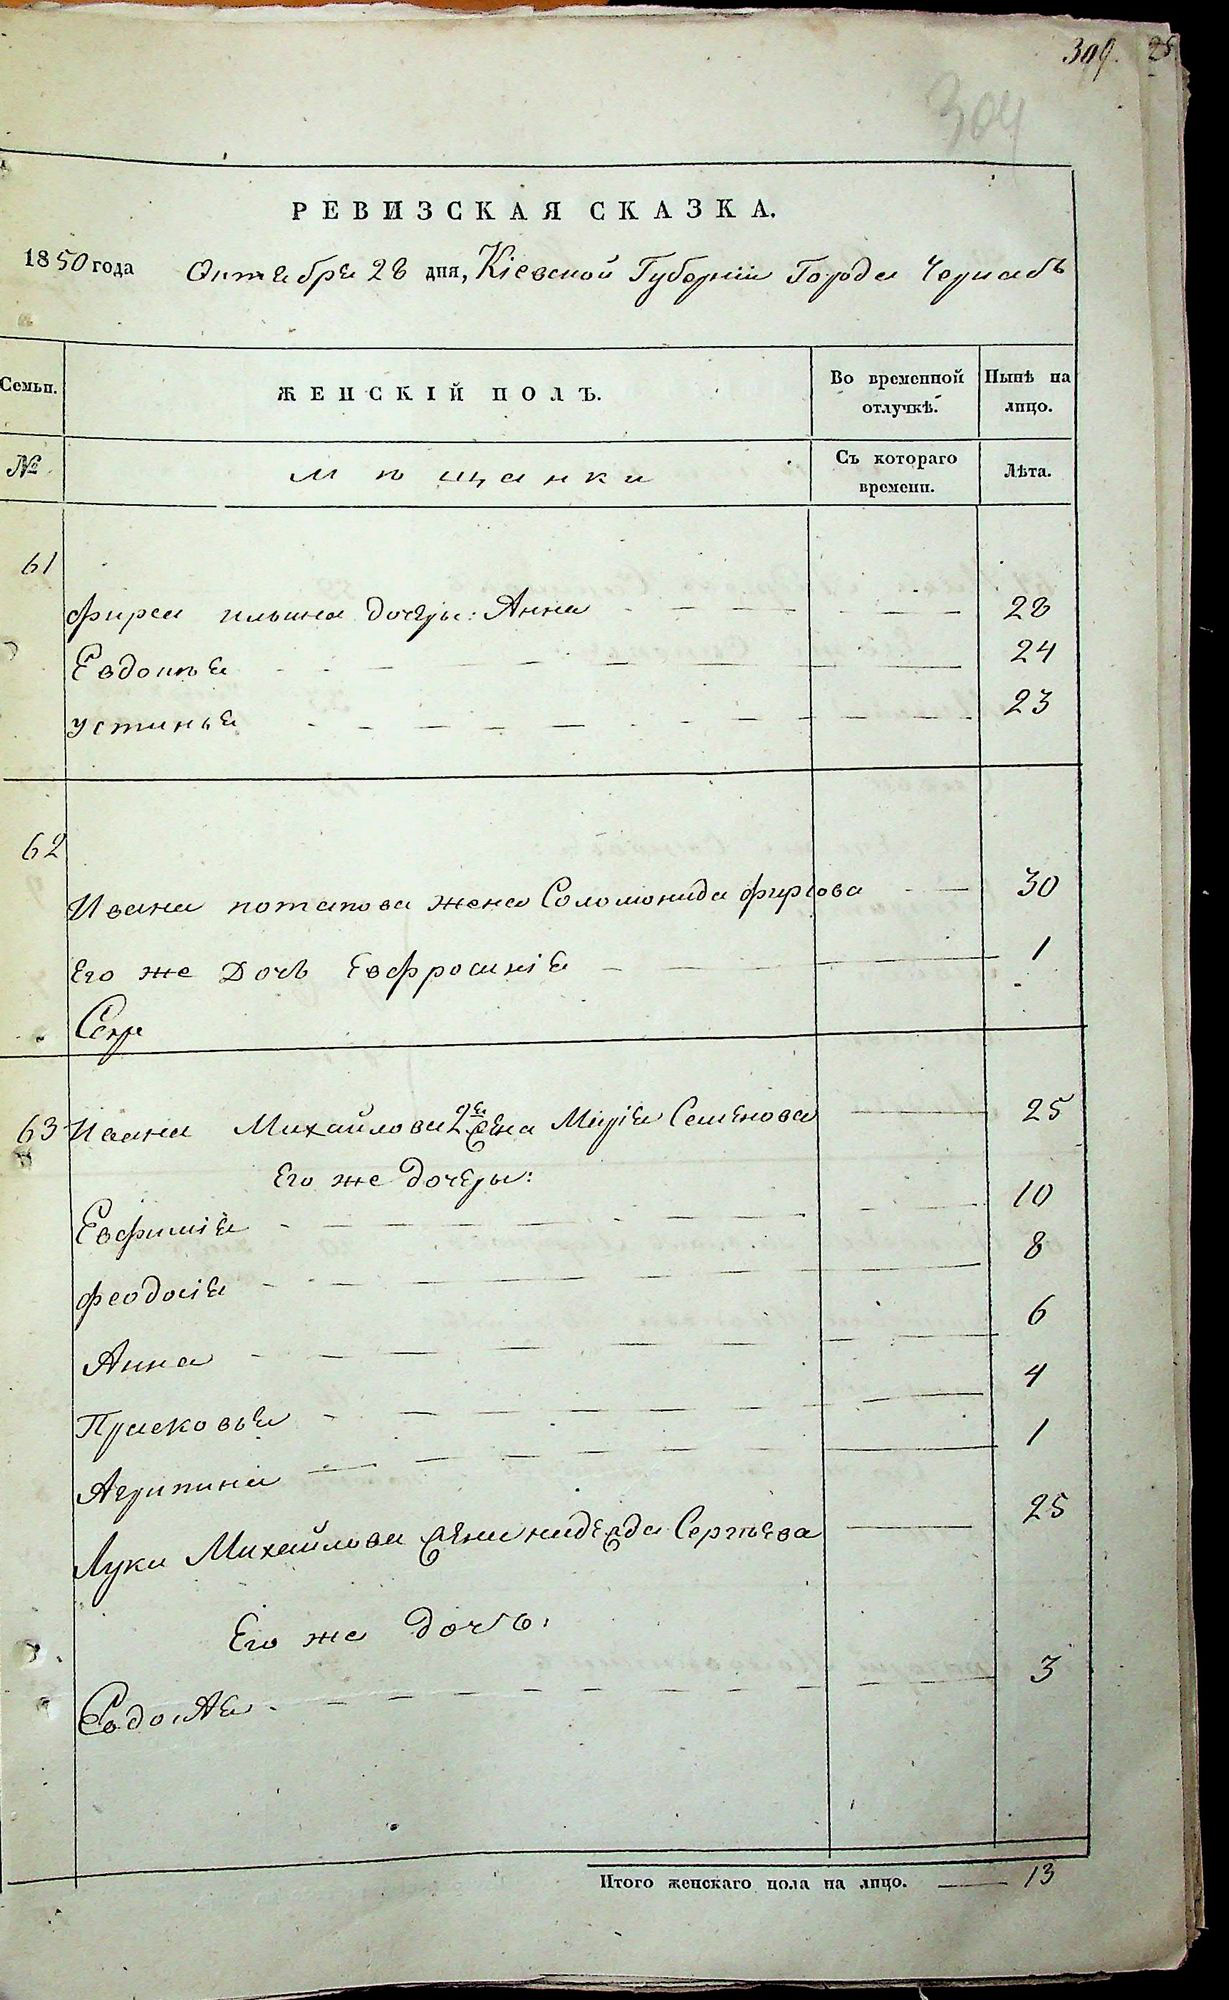 309. 25
304
РЕВИЗСКАЯ СКАЗКА.
1850 года Октября 28 дня, Кіевской Губерніи Города Черкасъ
Семьи. ЖЕНСКІЙ ПОЛЪ. Во временной отлучкѣ. Нынѣ на лицо.
№ Мѣщанки Съ котораго времени. Лѣта.
61
Фирса Ильина дочеры: Анна 28
Евдокѣя 24
Устинья 23
62
Ивана Потапова жена Соломонида Фирсова 30
Его же Дочь Евфросинія 1
63 Ивана Михайлова 2я жена Марія Семенова 25
Его же дочеры:
Евфимія 10
Феодосія 8
Анна 6
Прасковья 4
Агрипина 1
Луки Михайлова жена Надежда Сергѣева 25
Его же дочь:
3
Итого женскаго пола на лицо. 13